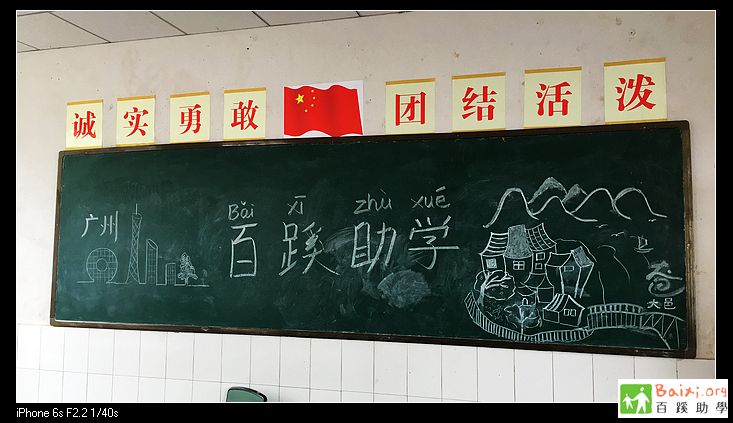 诚实勇敢 团结活泼
Bǎi xī zhù xué
广州 百蹊助学
大邑
iPhone 6s F2.2 1/40s
Baixi.org
百蹊助學